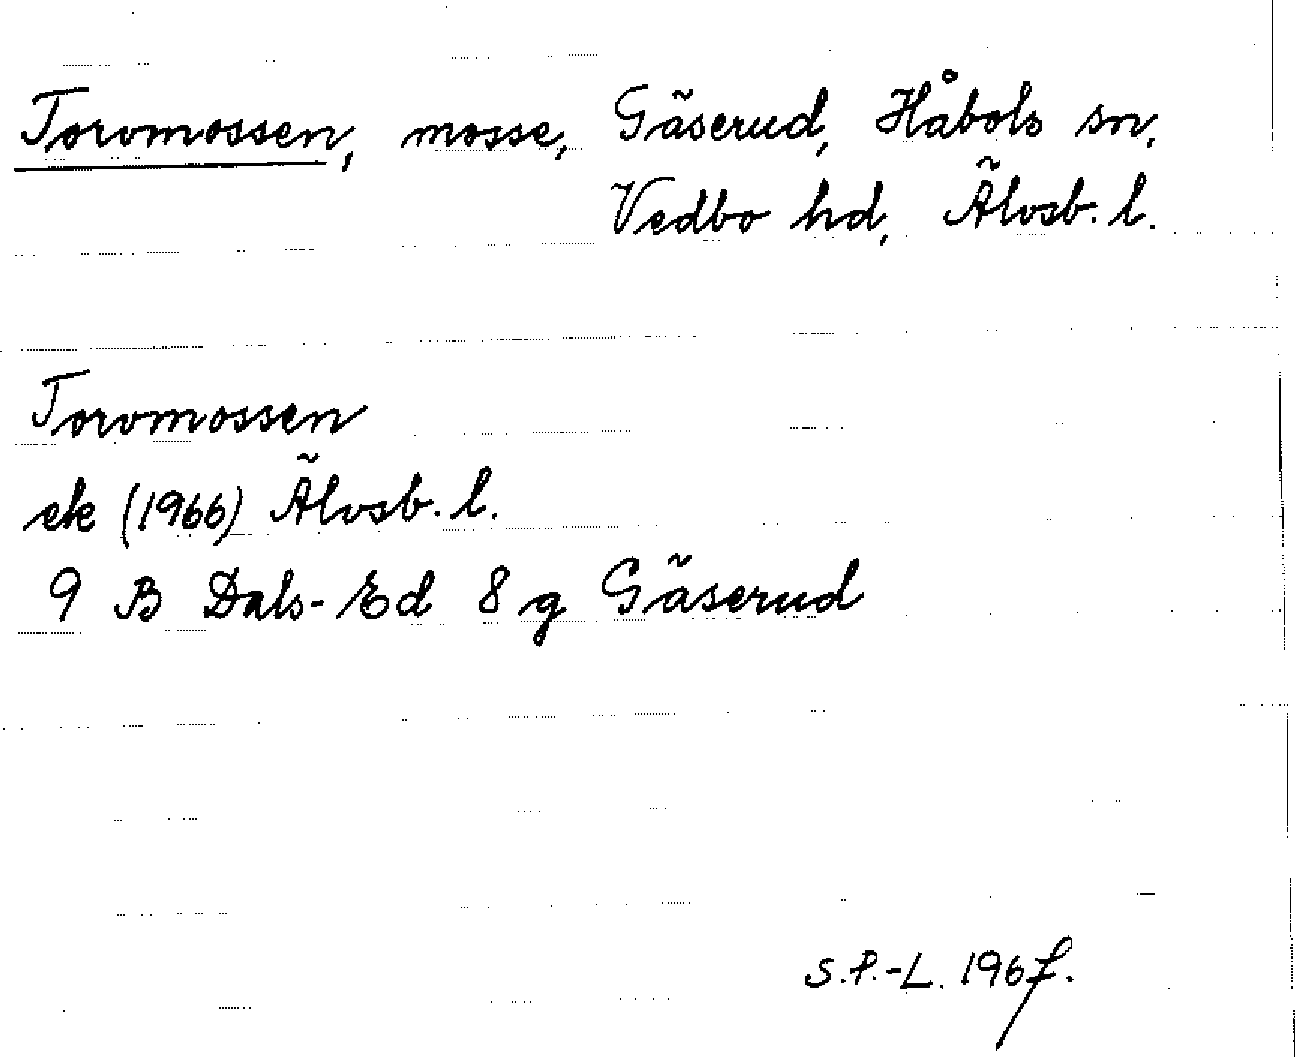 Torvmossen, mosse, Gäserud, Håbols sn,
Vedbo hd, Älvsb. l.
Torvmossen
ek (1966) Älvsb. l.
9 B Dals-Ed 8 g Gäserud
S.P.-L. 1967.